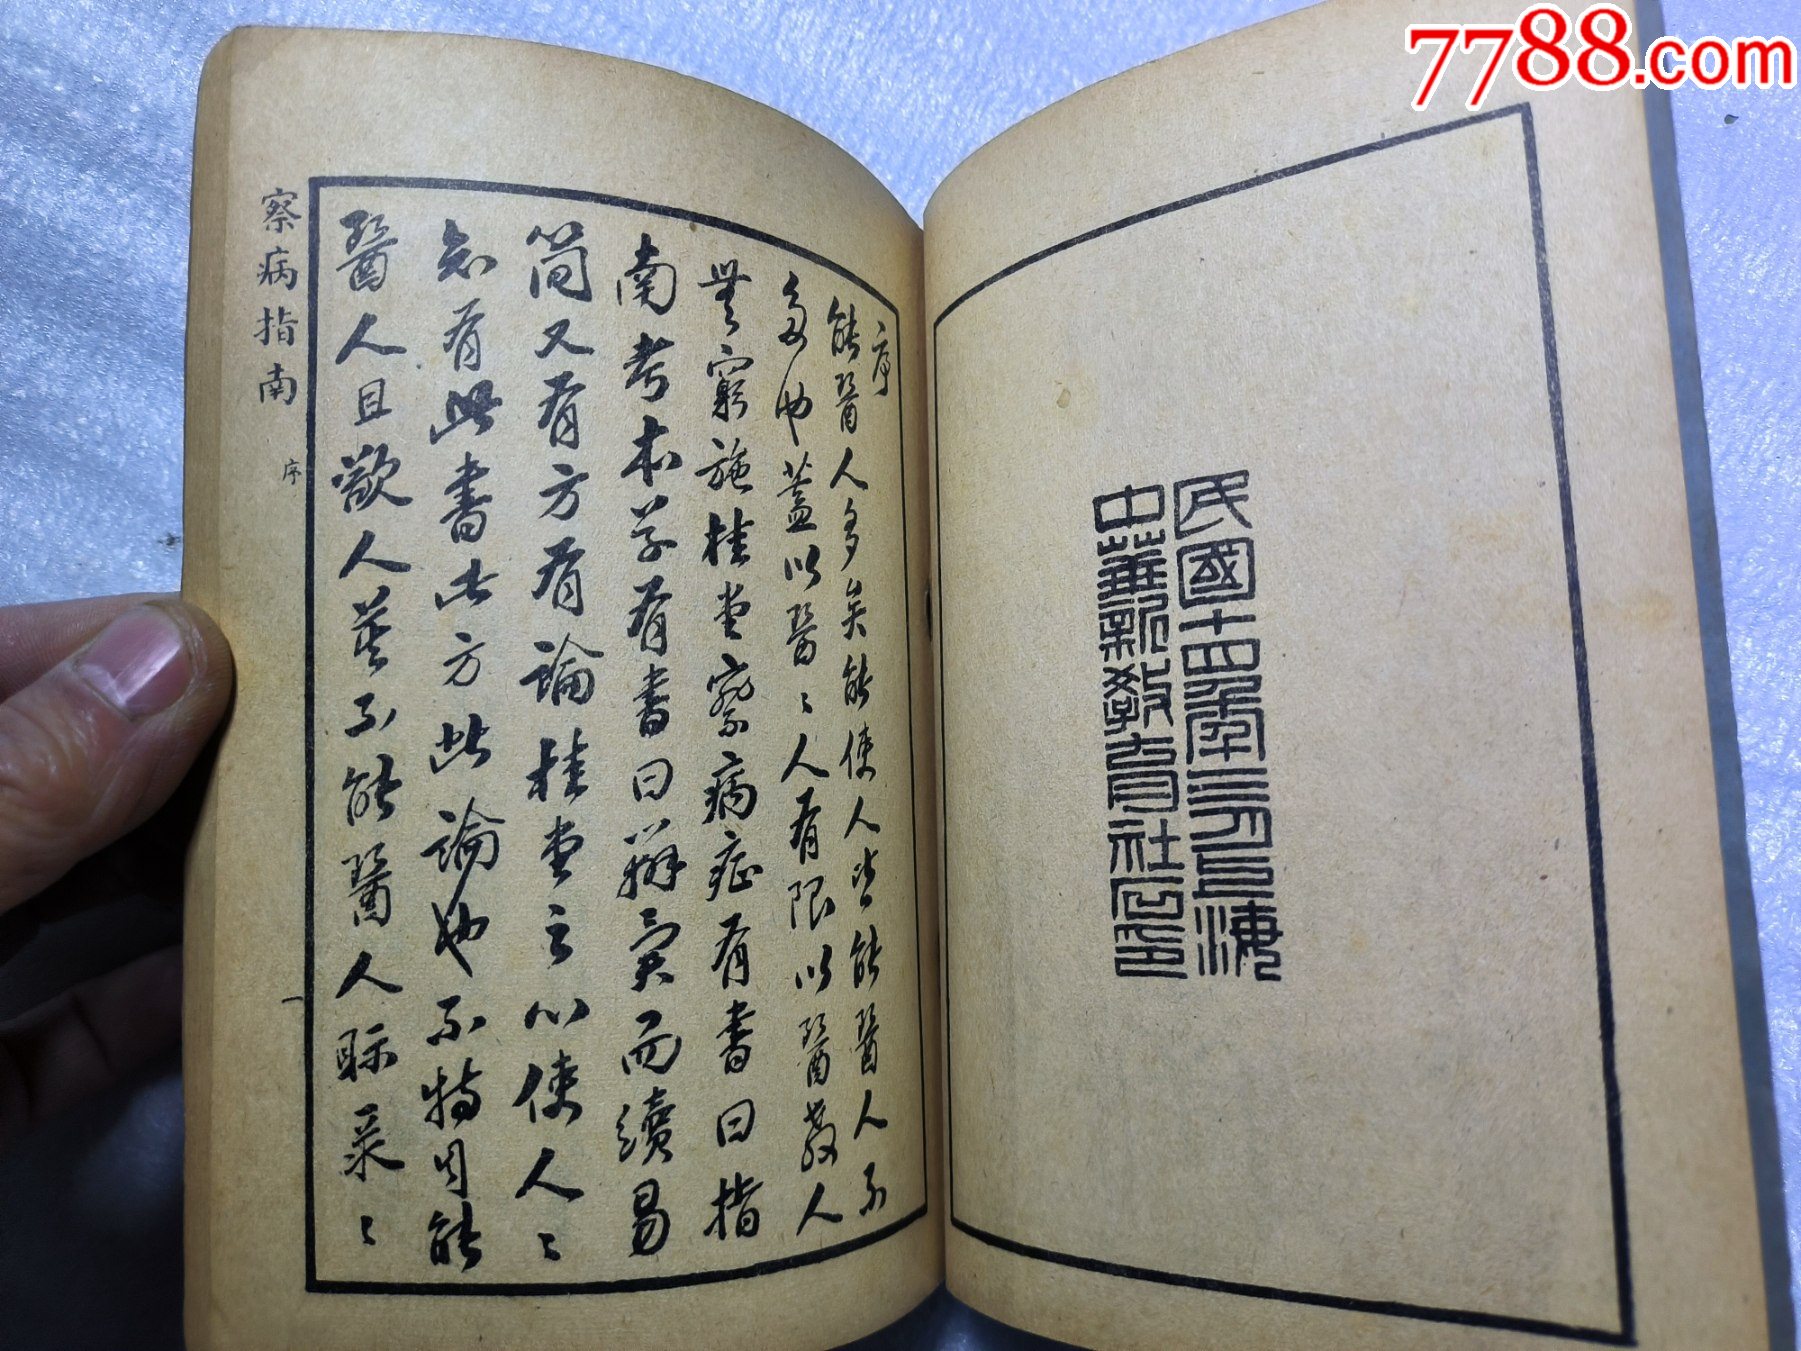 7788.com
民國十四年三月上海
中華新教育社石印
序
能醫人多矣能使人皆能醫人不
多也蓋以醫〻人有限以醫教人
無窮施桂堂察病症有書曰指
南考本草有書曰辨而續易
簡又有方有論桂堂之心使人〻
知有此書此方此論也不特自能
醫人且欲人莫不能醫人眎
察病指南
序
一